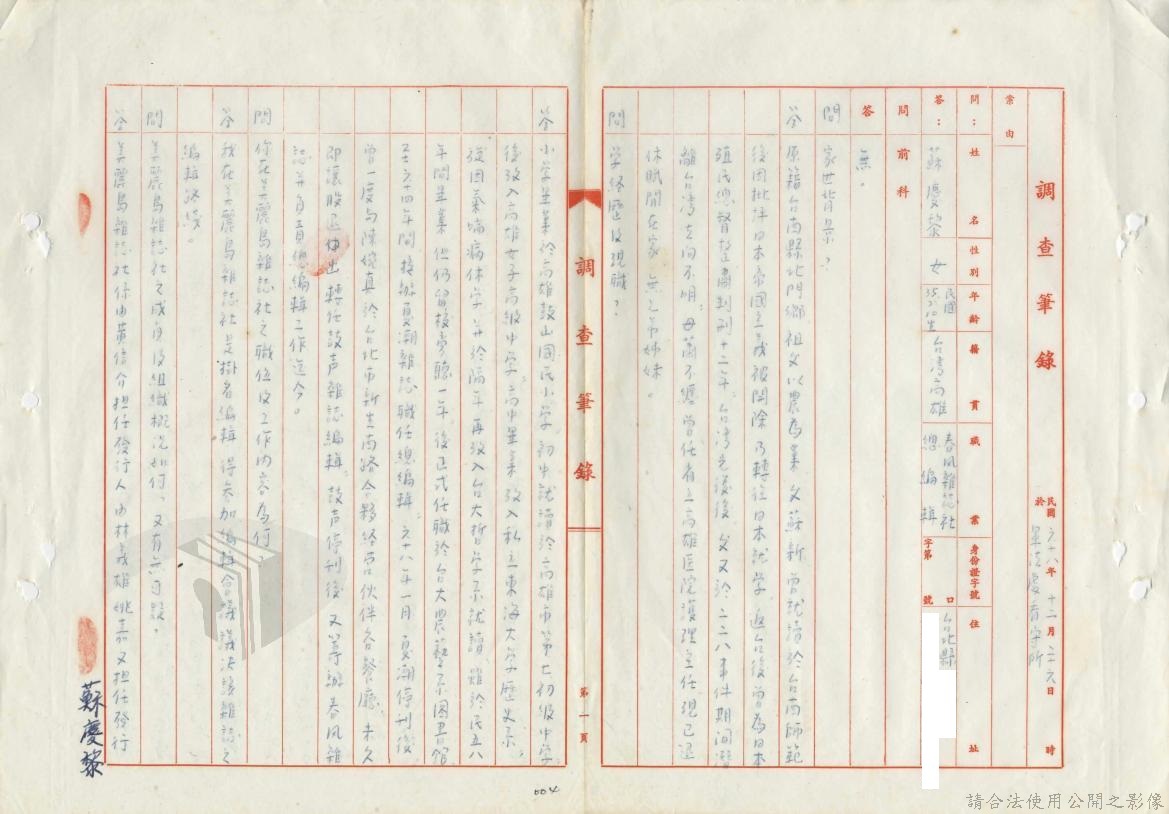 調查筆錄
民國六十八年十二月二十六日 時
於軍法處看守所
案由
問：姓名 性別 年齡 籍貫 職業 身份證字號 住址
答：蘇慶黎 女 民國35.2.10生 台湾高雄 春風雜誌社總編輯 字第 號 台北縣
問 前科
答 無。
問 家世背景？
答 原籍台南縣北門鄉，祖父以農為業，父蘇新曾就讀於台南師範
後因批評日本帝國主義被開除乃轉往日本就学，返台後曾為日本
殖民總督 判刑十二年，台湾光復後，父又於二二八事件期间潛
離台湾去向不明，母蕭不纏曾任省立高雄医院護理主任現已退
休賦閒在家，無兄弟姊妹。
問 学經歷及現職？
答 小学畢業於高雄鼓山國民小学，初中就讀於高雄市第七初級中学
後攷入高雄女子高級中学，高中畢業攷入私立東海大学歷史系，
後因氣喘病休学并於隔年再攷入台大哲学系就讀，雖於民五八
年間畢業，但仍留校旁聽一年，後正式任職於台大農藝系图書館
至六十四年間接辦夏潮雜誌職任總編輯，六十八年一月夏潮停刊後
曾一度与陳映真於台北市新生南路合夥經营伙伴 餐廳，未久
即讓股退出，轉任鼓声雜誌編輯，鼓声停刊後又籌辦春風雜
誌并負責總編輯工作迄今。
問 你在美麗島雜誌社之職位及工作內容為何
答 我在美麗島雜誌社是掛名編輯，得参加編輯會議議決該雜誌之
編輯路線。
問 美麗島雜誌社之成員及組織概況如何，又有
答 美麗島雜誌社係由黃信介担任發行人，由林義雄姚嘉文担任發行
調查筆錄
第一頁
蘇慶黎
004
請合法使用公開之影像